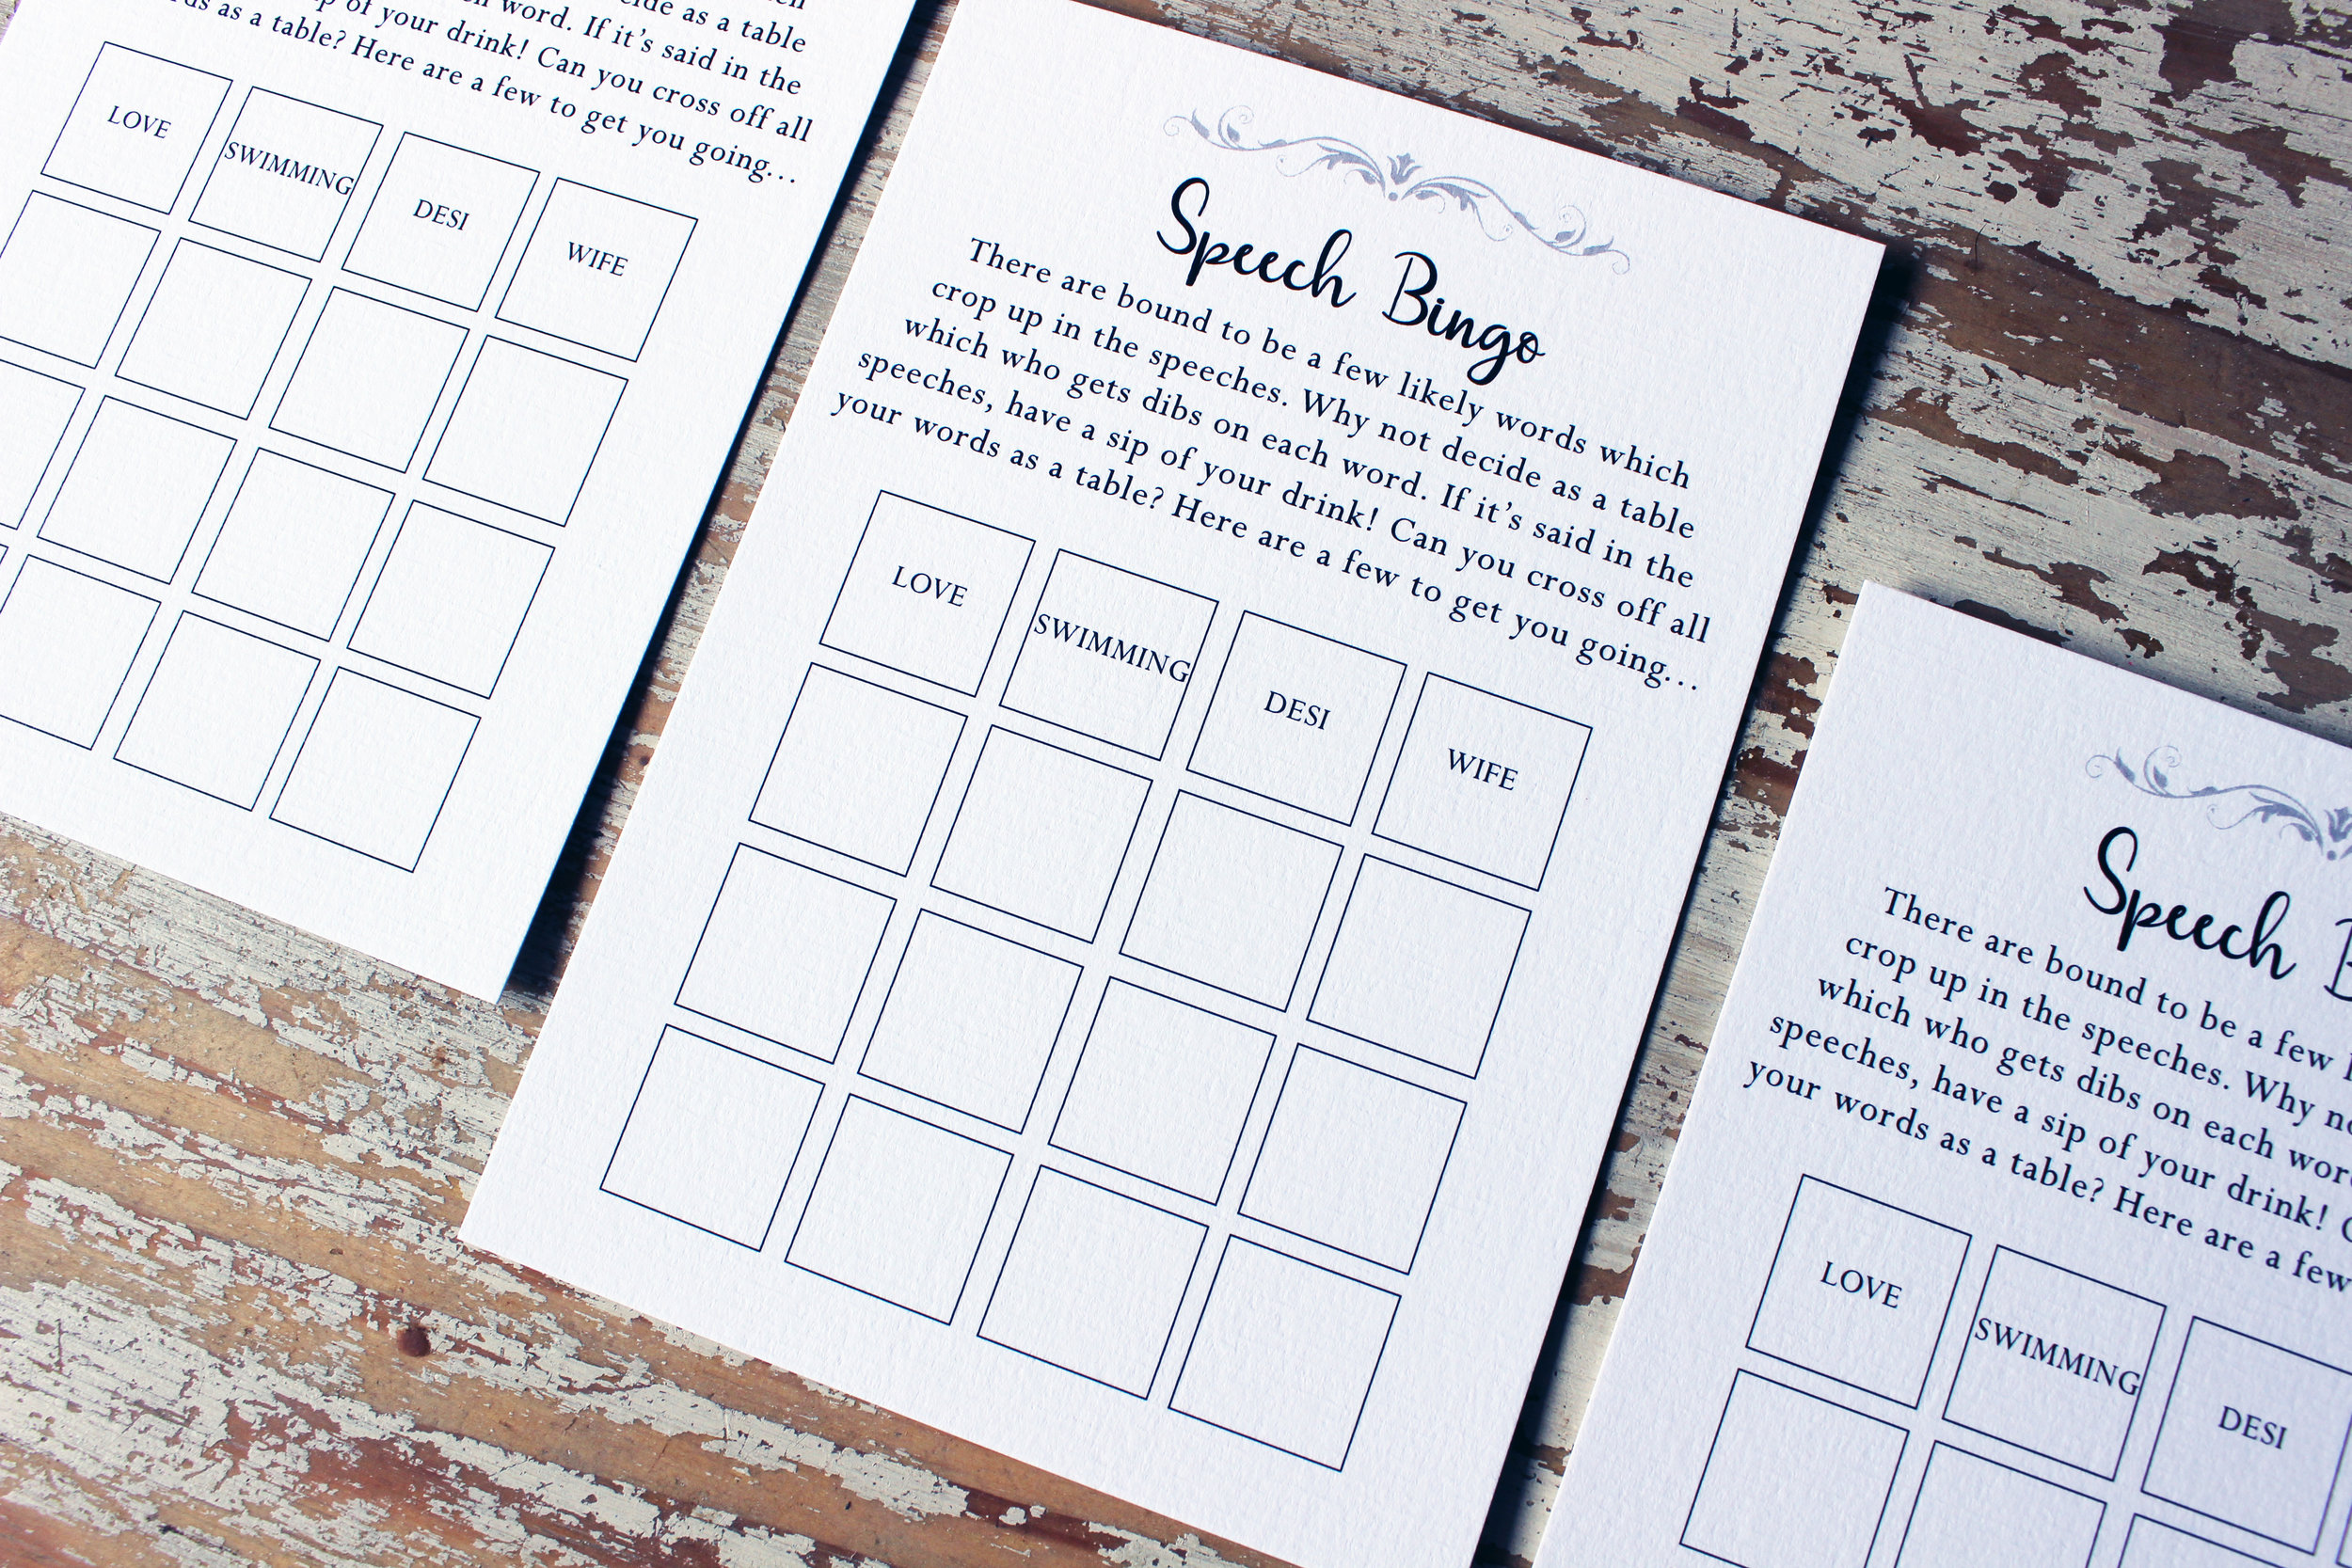 cide as a table
ch word. If it's said in the
sip of your drink! Can you cross off all
words as a table? Here are a few to get you going...
LOVE
SWIMMING
DESI
WIFE
Speech Bingo
There are bound to be a few likely words which
crop up in the speeches. Why not decide as a table
which who gets dibs on each word. If it's said in the
speeches, have a sip of your drink! Can you cross off all
your words as a table? Here are a few to get you going...
LOVE
SWIMMING
DESI
WIFE
Speech
There are bound to be a few
crop up in the speeches. Why
which who gets dibs on each
speeches, have a sip of your drink!
your words as a table? Here are a few
LOVE
SWIMMING
DESI